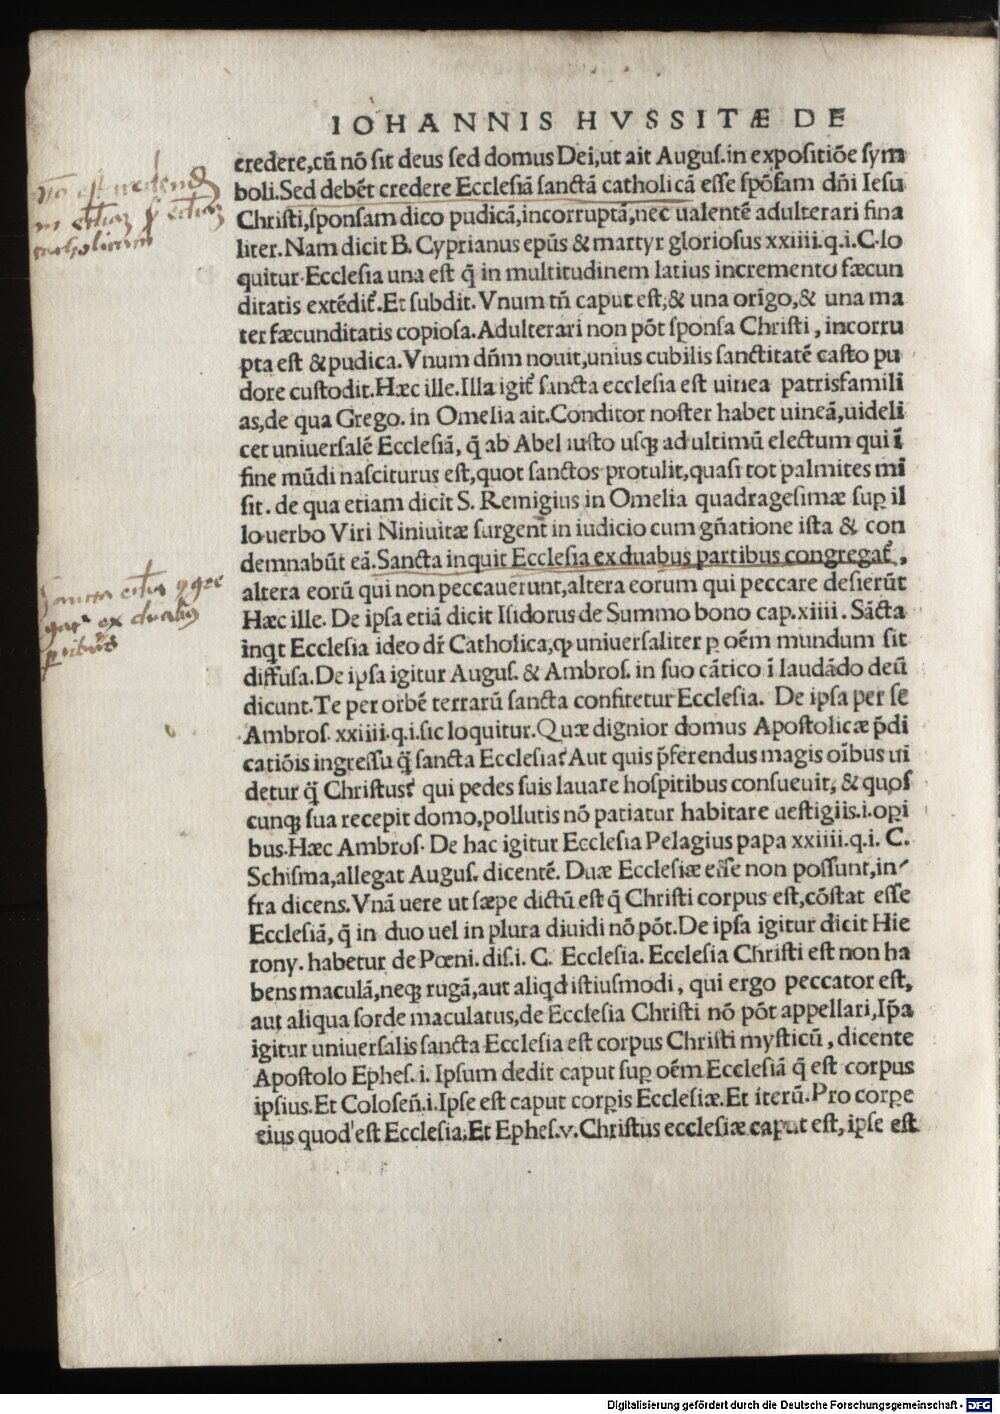 IOHANNIS HVSSITÆ DE
credere,cū nō sit deus sed domus Dei,ut ait Augus.in expositiōe sym
boli.Sed debēt credere Ecclesiā sanctā catholicā esse spōsam dñi Iesu
Christi,sponsam dico pudicā,incorruptā,nec ualentē adulterari fina
liter.Nam dicit B. Cyprianus epūs & martyr gloriosus xxiiii.q.i.C.lo
quitur.Ecclesia una est q̄ in multitudinem latius incremento fæcun
ditatis extēdit᷑.Et subdit. Vnum tñ caput est,& una origo,& una ma
ter fæcunditatis copiosa.Adulterari non pōt sponsa Christi, incorru
pta est & pudica.Vnum dñm nouit,unius cubilis sanctitatē casto pu
dore custodit.Hæc ille.Illa igit᷑ sancta ecclesia est uinea patrisfamili
as,de qua Grego. in Omelia ait.Conditor noster habet uineā,uideli
cet uniuersalē Ecclesiā, q̄ ab Abel iusto usqꝫ ad ultimū electum qui ī
fine mūdi nasciturus est,quot sanctos protulit,quasi tot palmites mi
sit. de qua etiam dicit S. Remigius in Omelia quadragesimæ suꝑ il
lo uerbo Viri Niniuitæ surgent in iudicio cum gñatione ista & con
demnabūt eā.Sancta inquit Ecclesia ex duabus partibus congregat᷑,
altera eorū qui non peccauerunt,altera eorum qui peccare desierūt
Hæc ille. De ipsa etiā dicit Isidorus de Summo bono cap.xiiii. Sācta
inqt Ecclesia ideo dr̄ Catholica,ꝙ uniuersaliter ꝑ oēm mundum sit
diffusa.De ipsa igitur Augus. & Ambros. in suo cātico ī laudādo deū
dicunt.Te per orbē terrarū sancta confitetur Ecclesia. De ipsa per se
Ambros. xxiiii.q.i.sic loquitur.Quæ dignior domus Apostolicæ p̄di
catiōis ingressu q̄̃ sancta Ecclesia? Aut quis p̄ferendus magis oībus ui
detur q̄̃ Christus? qui pedes suis lauare hospitibus consueuit, & quos
cunqꝫ sua recepit domo,pollutis nō patiatur habitare uestigiis.i.oꝑi
bus.Hæc Ambros. De hac igitur Ecclesia Pelagius papa xxiiii.q.i. C.
Schisma,allegat Augus. dicentē. Duæ Ecclesiæ esse non possunt,in
fra dicens.Vnā uere ut sæpe dictū est q̄ Christi corpus est,cōstat esse
Ecclesiā, q̄ in duo uel in plura diuidi nō pōt.De ipsa igitur dicit Hie
rony. habetur de Pœni. dis.i. C. Ecclesia. Ecclesia Christi est non ha
bens maculā,neqꝫ rugā,aut aliqd istiusmodi, qui ergo peccator est,
aut aliqua sorde maculatus,de Ecclesia Christi nō pōt appellari,Ip̄a
igitur uniuersalis sancta Ecclesia est corpus Christi mysticū, dicente
Apostolo Ephes. i. Ipsum dedit caput suꝑ oēm Ecclesiā q̄ est corpus
ipsius.Et Coloseñ.i.Ipse est caput corꝑis Ecclesiæ.Et iterū.Pro corꝑe
eius quod est Ecclesia;Et Ephes.v.Christus ecclesiæ caput est, ipse est
Digitalisierung gefördert durch die Deutsche Forschungsgemeinschaft - DFG